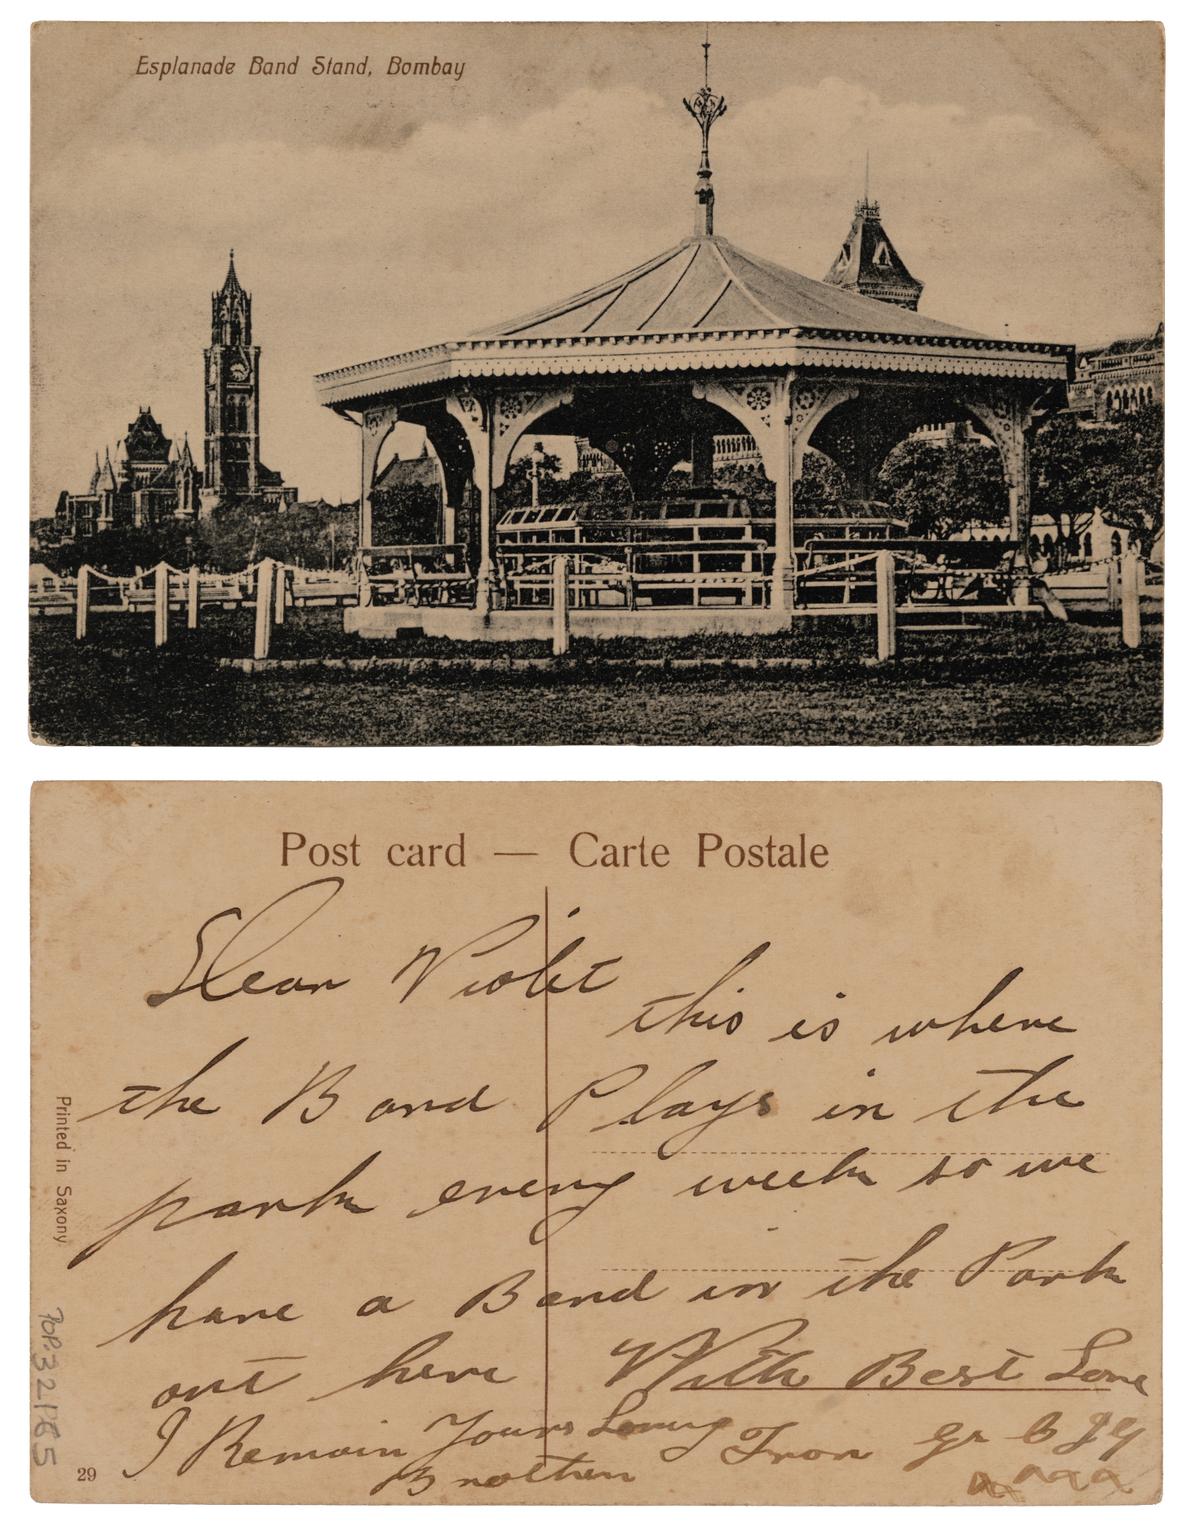 Esplanade Band Stand, Bombay
Post card — Carte Postale
Dear Violet
this is where
the Band Plays in the
park every week so we
have a Band in the Park
out here With Best Love
I Remain Yours Loving
Brother
Printed in Saxony
29